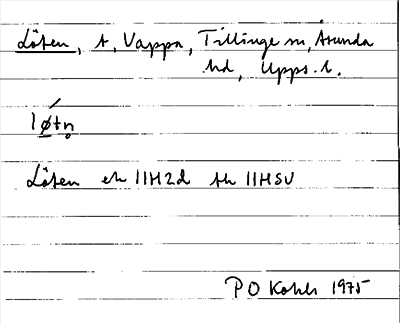 Löten, t. Vappa, Tillinge sn, Åsunda
hd, Upps. l.
løtn̥
Löten ek 11H2d th 11HSV
P O Kohls 1975